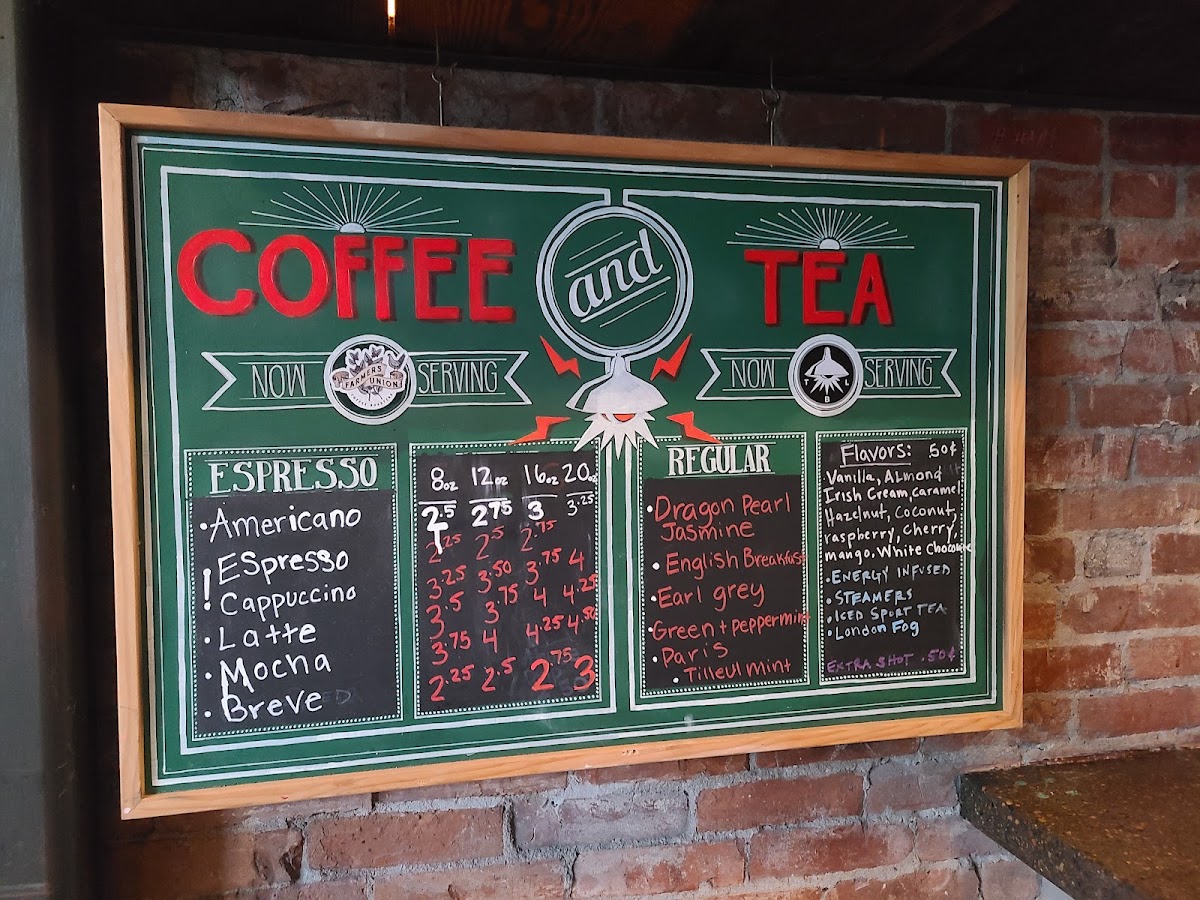 COFFEE
and
TEA
NOW
FARMERS UNION
SERVING
NOW
T B L
SERVING
ESPRESSO
• Americano
Espresso
Cappuccino
• Latte
• Mocha
• Breve
8oz 12oz 16oz 20oz
2.5 2.75 3 3.25
2.25 2.5 2.75
3.25 3.50 3.75 4
3.5 3.75 4 4.25
3.75 4 4.25 4.50
2.25 2.5 2.75 3
REGULAR
• Dragon Pearl
Jasmine
• English Breakfast
• Earl grey
• Green + peppermint
• Paris
• Tilleul mint
Flavors: 50¢
Vanilla, Almond
Irish Cream, Caramel
Hazelnut, Coconut,
raspberry, Cherry,
mango. White Chocolate
• ENERGY INFUSED
• STEAMERS
• ICED SPORT TEA
• London Fog
EXTRA SHOT .50¢